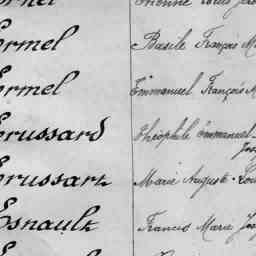 Ermel Basile François M
Ermel Emmanuel François M
Erussard Théophile Emmanuel-
Jose
Erussart Marie Auguste-Lou
Esnault Francis Marie Jose